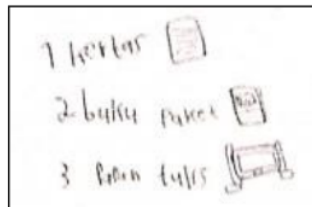 1 kertas
2 buku paket
3 Papan tulis